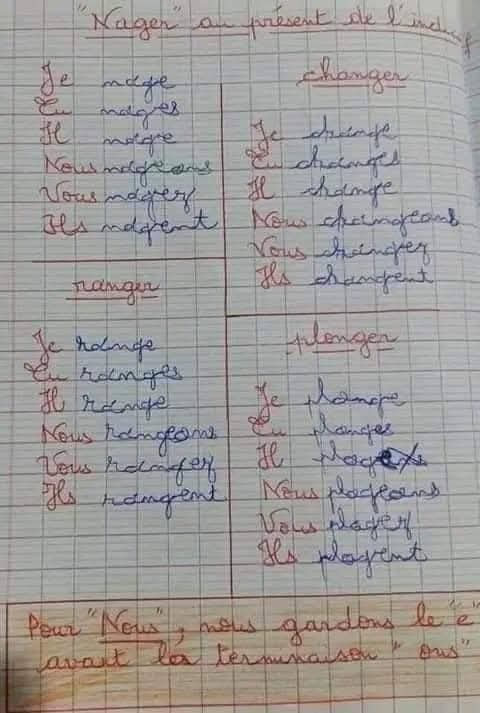 "Nager" au présent de l'indicatif
Je nage
Tu nages
Il nage
Nous nageons
Vous nagez
Ils nagent
changer
Je change
Tu changes
Il change
Nous changeons
Vous changez
Ils changent
ranger
Je range
Tu ranges
Il range
Nous rangeons
Vous rangez
Ils rangent
plonger
Je plonge
Tu plonges
Il plage
Nous plageons
Vous plagez
Ils plagent
Pour "Nous", nous gardons le "e"
avant la terminaison "ons"